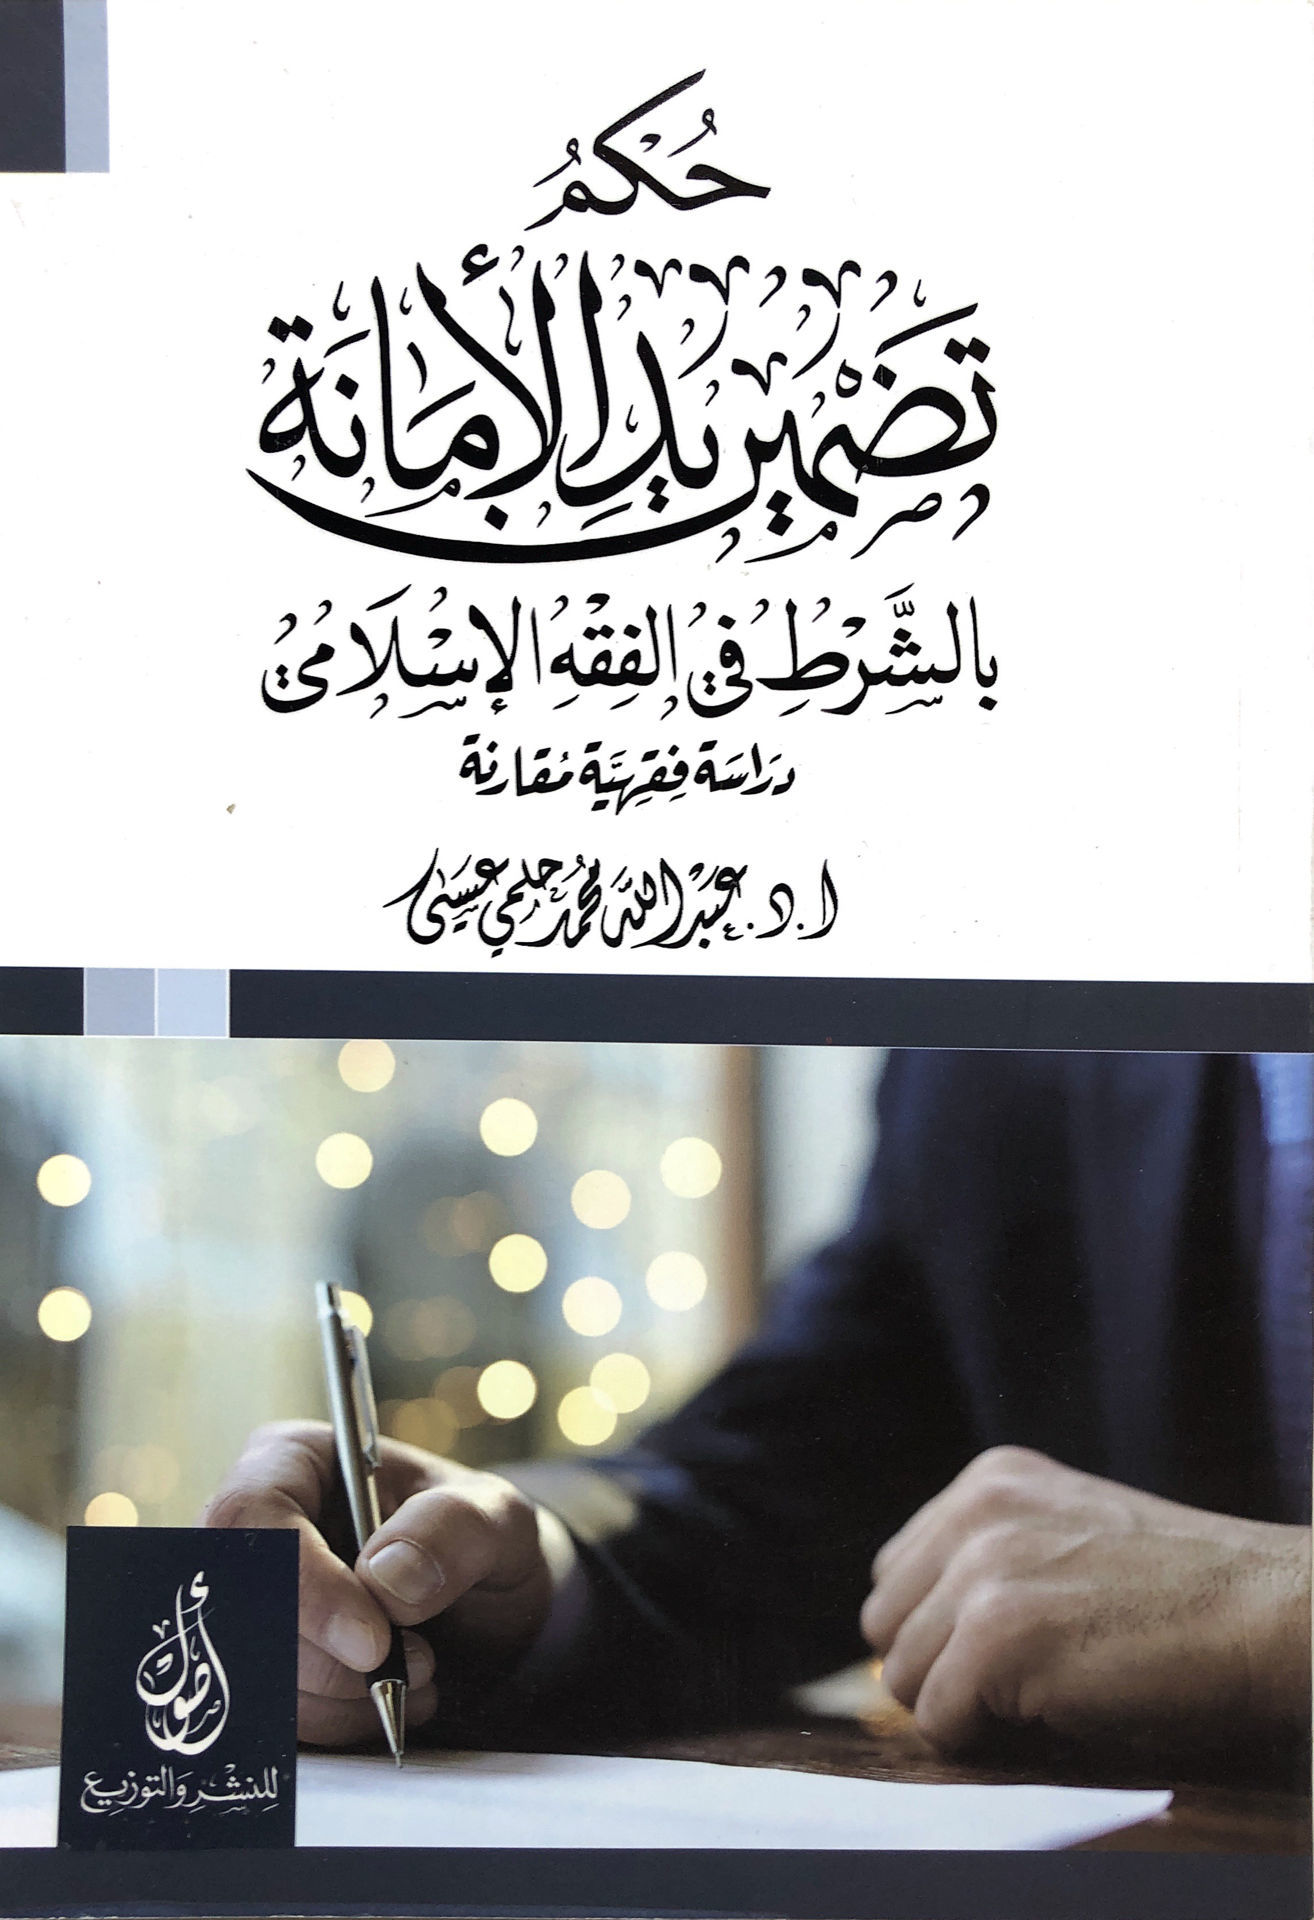 حُكْمُ
تَضْمِينِ يَدِ الأَمَانَةِ
بِالشَّرْطِ فِي الفِقْهِ الإِسْلَامِيِّ
دِرَاسَة فِقْهِيَّة مُقَارنة
ا.د. عَبْد اللَّه مُحَمَّد حلمي عيسَى
أصول
لِلنشْرِ وَالتوزيع